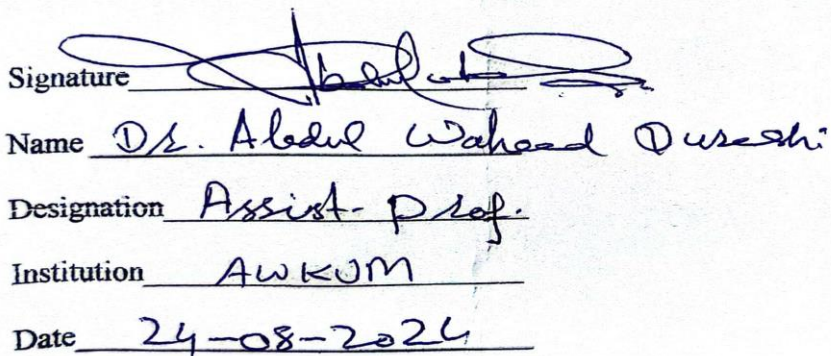 Signature
Name Dr. Abdul Waheed Qureshi
Designation Assist- Prof.
Institution AWKUM
Date 24-08-2024